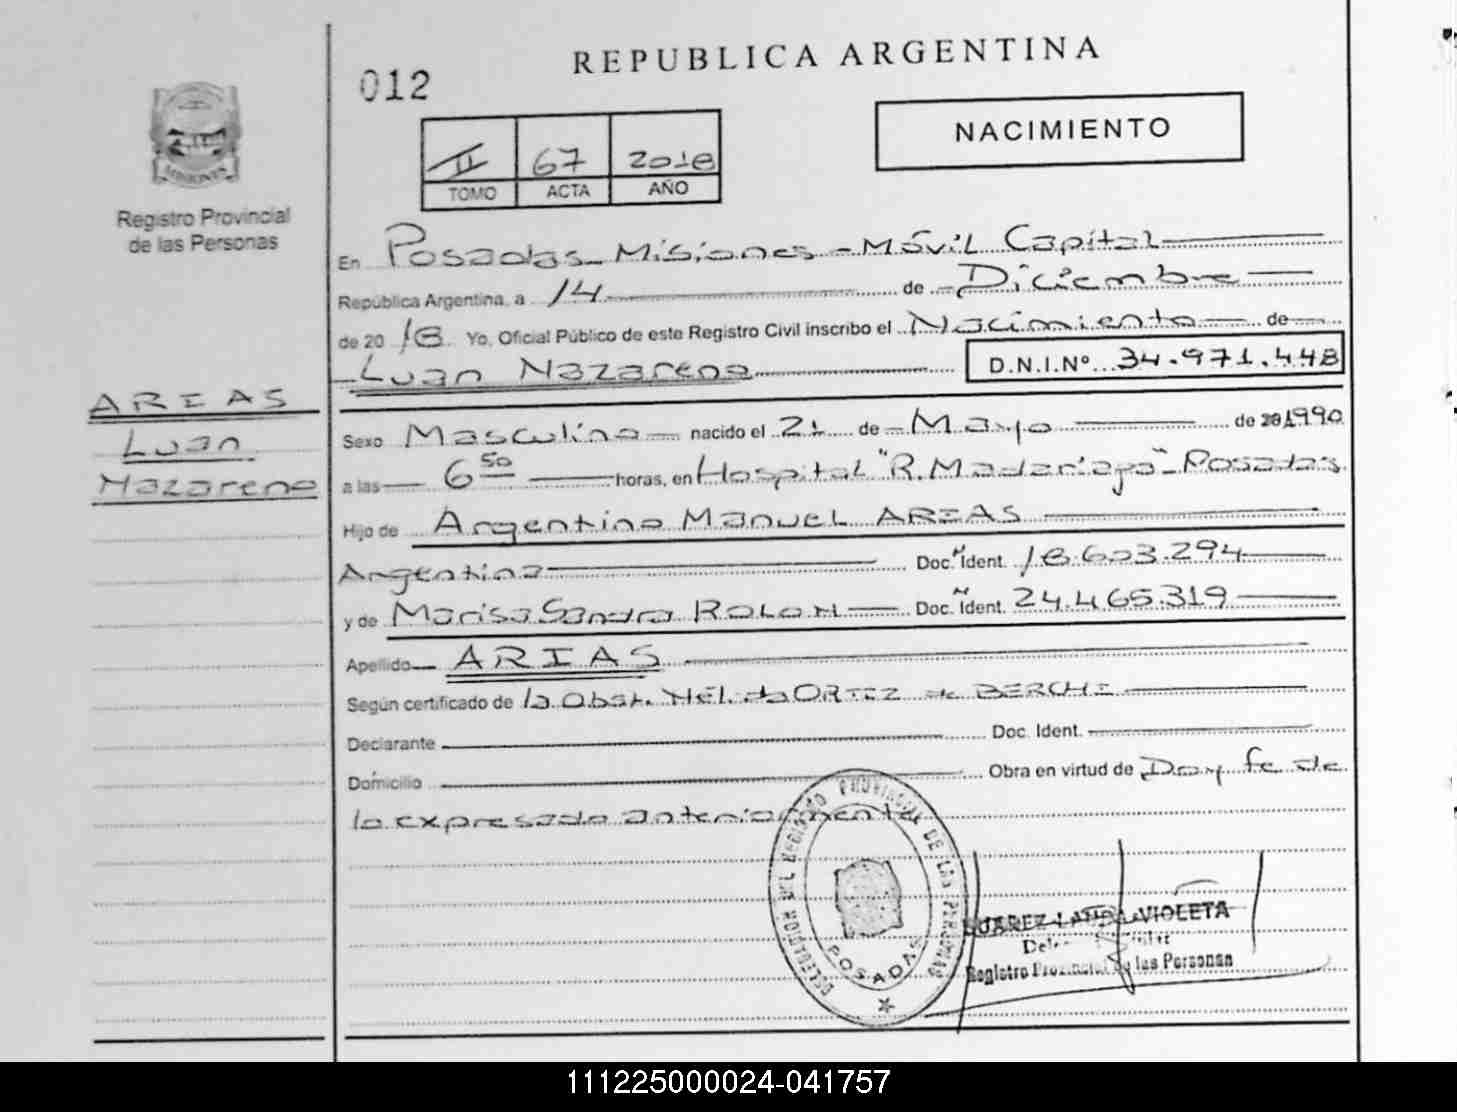 REPUBLICA ARGENTINA
012
NACIMIENTO
II 67 2018
TOMO ACTA AÑO
MISIONES
Registro Provincial
de las Personas
En Posadas Misiones - Móvil Capital
República Argentina, a 14 de Diciembre
de 2018 Yo, Oficial Público de este Registro Civil inscribo el Nacimiento de
Luan Nazareno D.N.I.Nº 34.971.448
ARIAS
Luan
Nazareno
Sexo Masculino nacido el 21 de Mayo de 1990
a las 6 50 horas, en Hospital "R. Madariaga" - Posadas
Hijo de Argentino Manuel ARIAS
Argentina Doc. Ident. 18.603.294
y de Marisa Sandra ROLON Doc. Ident. 24.465.319
Apellido ARIAS
Según certificado de la Obst. NELida ORTIZ de BERCHI
Declarante Doc. Ident.
Domicilio Obra en virtud de Doy fe de
lo expresado anteriormente
DELEGACION DEL REGISTRO PROVINCIAL DE LAS PERSONAS
POSADAS
SUAREZ LAURA VIOLETA
Registro Provincial de las Personas
111225000024-041757